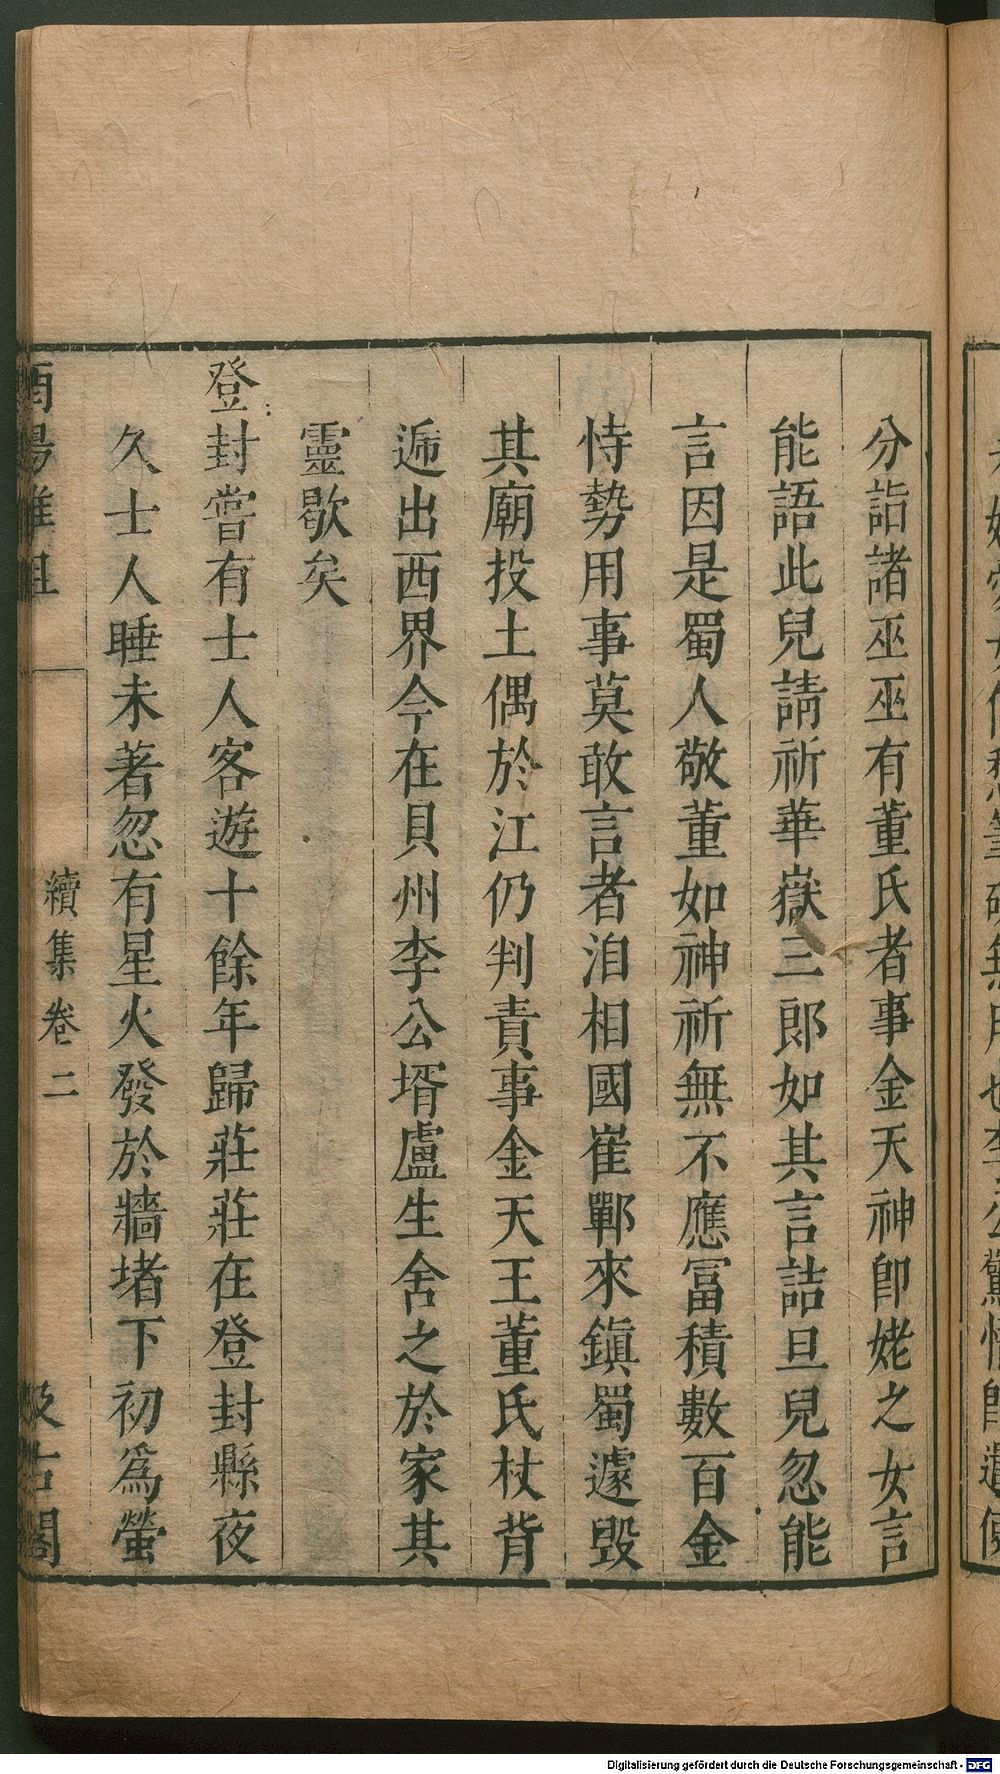 分詣諸巫巫有董氏者事金天神卽姥之女言
能語此兒請祈華嶽三郎如其言詰旦兒忽能
言因是蜀人敬董如神祈無不應富積數百金
恃勢用事莫敢言者洎相國崔鄲來鎮蜀遽毀
其廟投土偶於江仍判責事金天王董氏杖背
遞出西界今在貝州李公壻盧生舍之於家其
靈歇矣
登封嘗有士人客遊十餘年歸莊莊在登封縣夜
久士人睡未著忽有星火發於牆堵下初為螢
酉陽雜俎
續集卷二
汲古閣
Digitalisierung gefördert durch die Deutsche Forschungsgemeinschaft - DFG